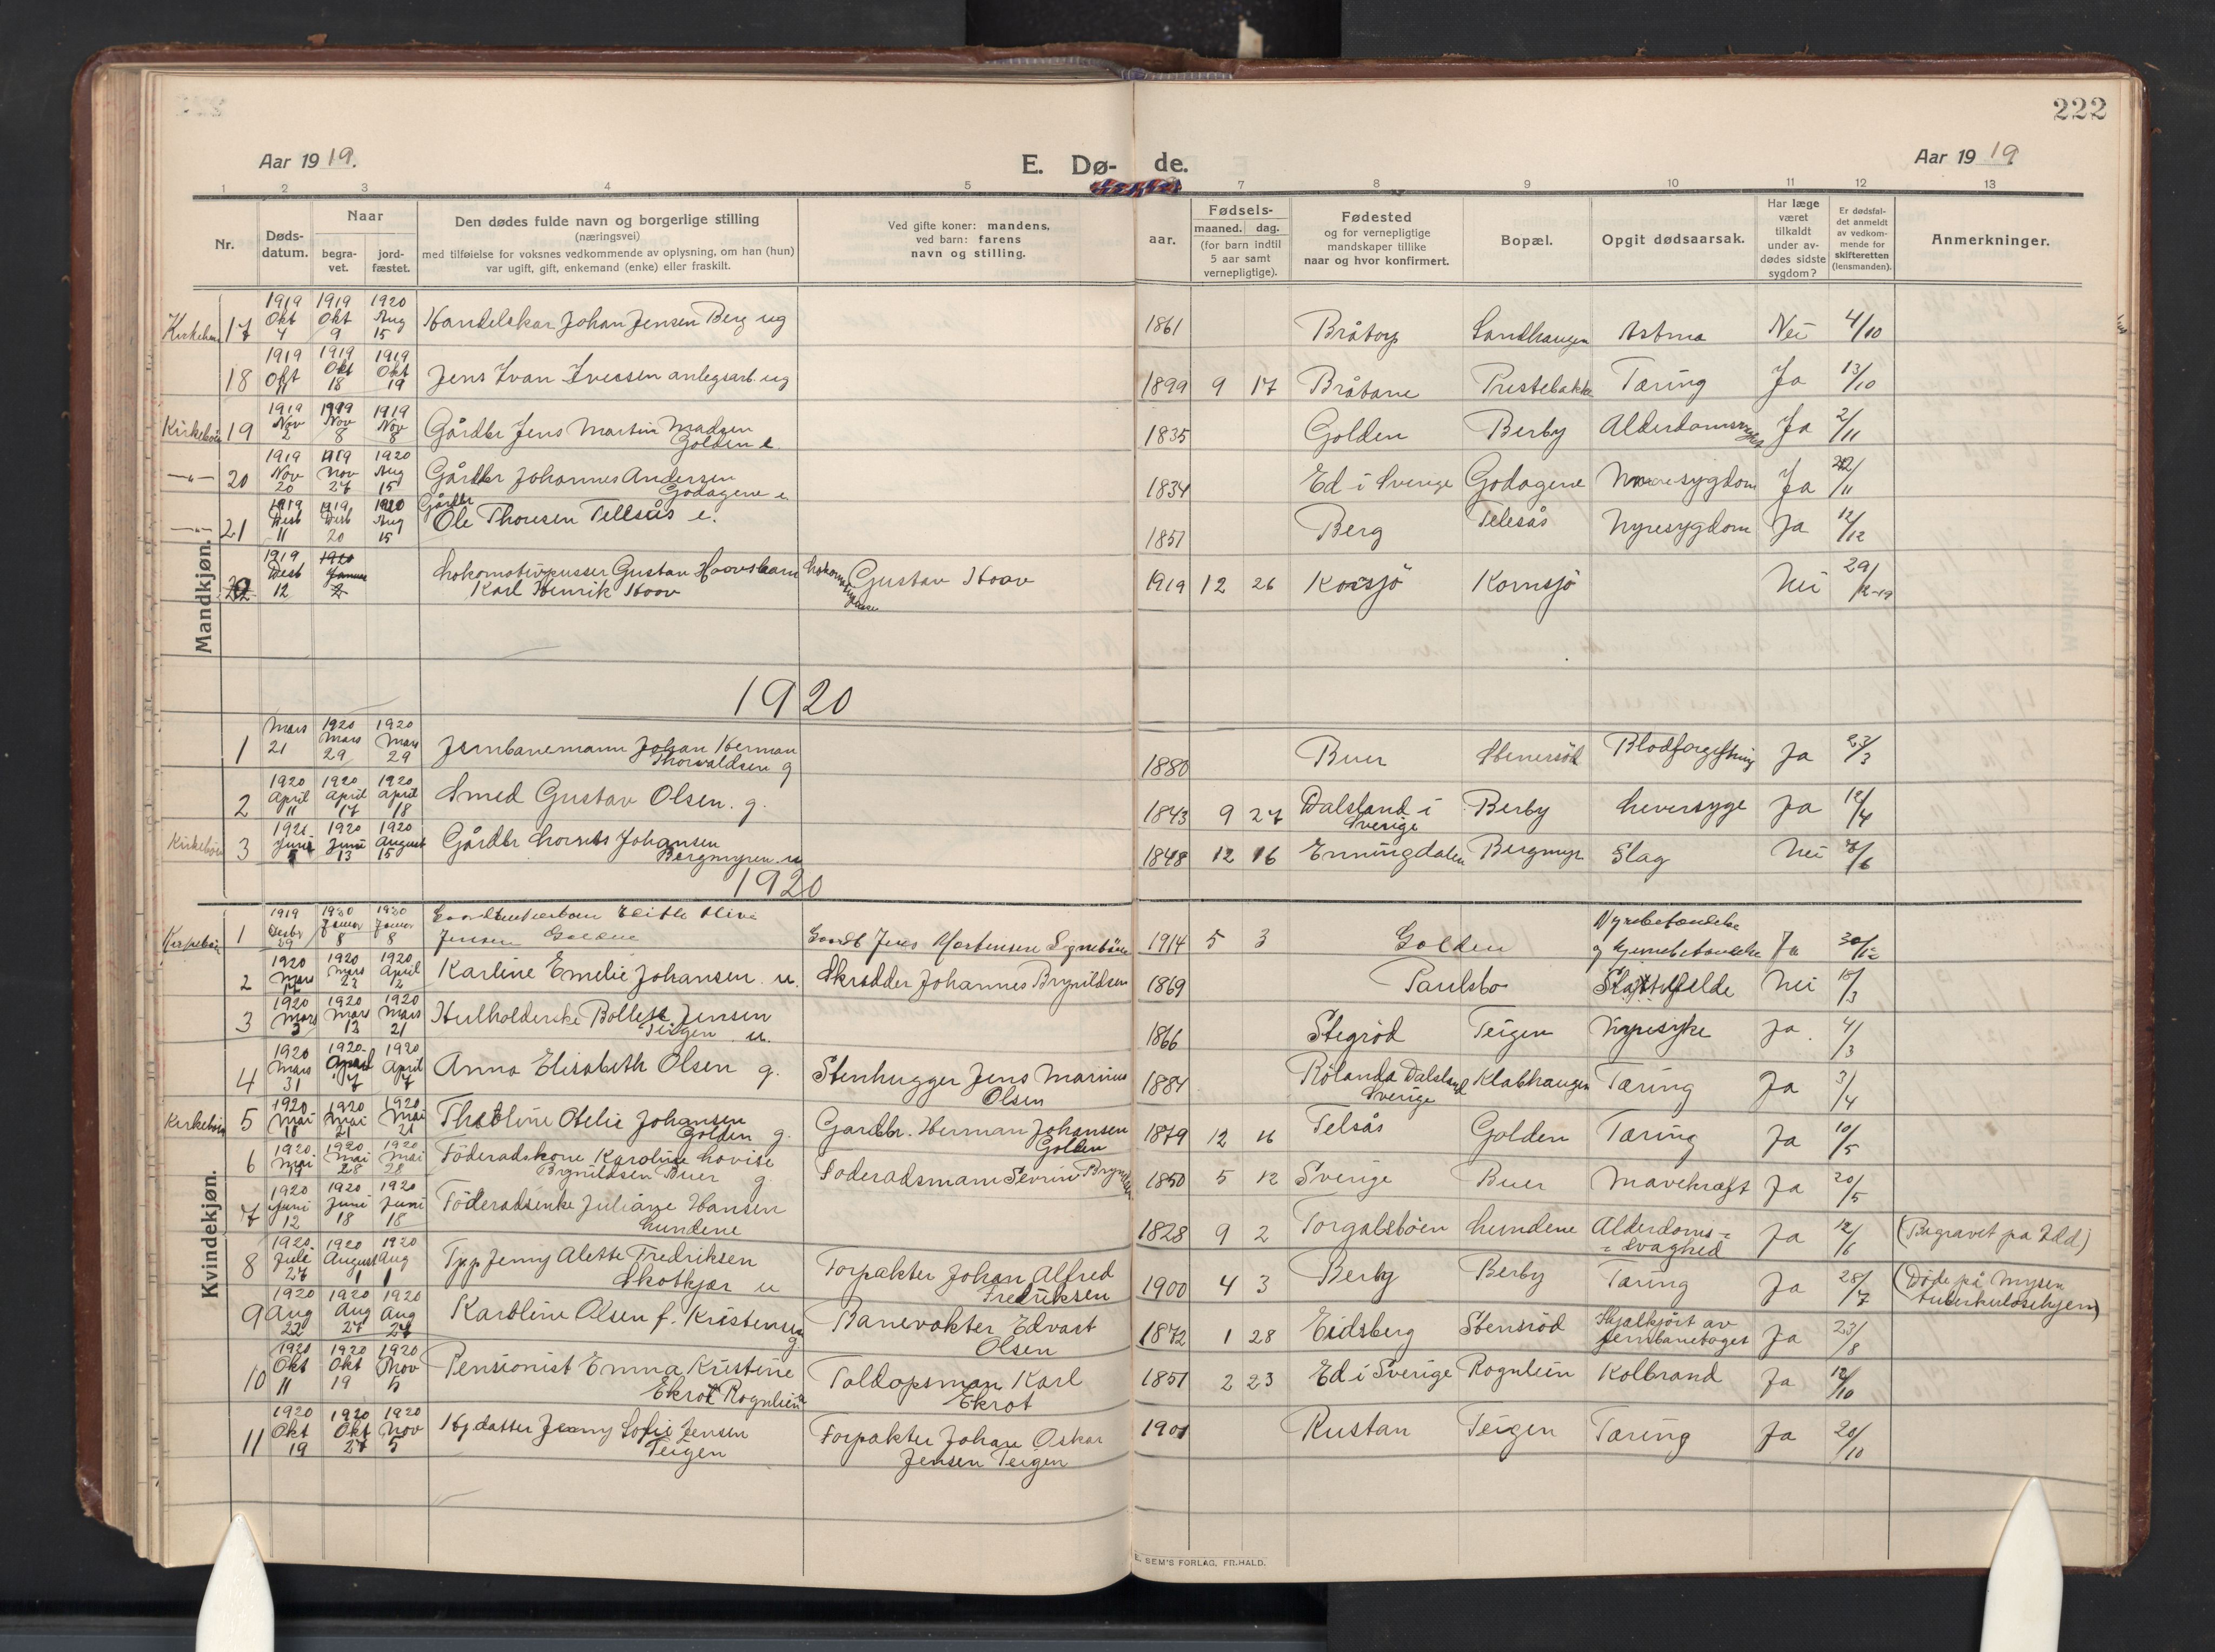 222
Aar 1919.
E. Dø- de.
Aar 1919
1 2 3 4 5 7 8 9 10 11 12 13
Nr.
Døds-
datum.
Naar
begra-
vet.
jord-
fæstet.
Den dødes fulde navn og borgerlige stilling
(næringsvei)
med tilføielse for voksnes vedkommende av oplysning, om han (hun)
var ugift, gift, enkemand (enke) eller fraskilt.
Ved gifte koner: mandens,
ved barn: farens
navn og stilling.
aar.
Fødsels-
maaned. dag.
(for barn indtil
5 aar samt
vernepligtige).
Fødested
og for vernepligtige
mandskaper tillike
naar og hvor konfirmert.
Bopæl.
Opgit dødsaarsak.
Har læge
været
tilkaldt
under av-
dødes sidste
sygdom?
Er dødsfal-
det anmeldt
av vedkom-
mende for
skifteretten
(lensmanden).
Anmerkninger.
Mandkjøn.
17 1919 Okt 4 1919 Okt 9 1920 Aug 15 Handelskar Johan Jensen Berg ug 1861 Bråtorp Sandhaugen Astma Nei 4/10
18 1919 Okt 11 1919 Okt 18 1919 Okt 19 Jens Ivan Iversen anlegsarb. ug 1899 9 17 Bråtane Prestebakke Tæring Ja 13/10
Kirkebøen 19 1919 Nov 2 1919 Nov 8 1919 Nov 8 Gårdbr Jens Martin Madsen
Golden e. 1835 Golden Berby Ja 2/11
—"— 20 1919 Nov 20 1919 Nov 27 1920 Aug 15 Gårdbr Johannes Andersen
Godagene e 1834 Ed i Sverige Godagene Ja 22/11
—"— 21 1919 Desb 11 1919 Desb 20 1920 Aug 15 Gårdbr
Ole Thoresen Tellsås e. 1851 Berg Telesås Nyresygdom Ja 12/12
22 1919 Desb 12 1920 Januar 2 Lokomotivpusser Gustav Hoovs barn
Karl Henrik Hoov Gustav Hoov 1919 12 26 Korsjö Kornsjö Nei 29/12-19
1920
1 Mars 21 1920 Mars 29 1920 Mars 29 Jernbanemann Johan Herman
Thorvaldsen g 1880 Buer Stenersöd Blodforgiftning Ja 23/3
2 1920 April 11 1920 April 17 1920 April 18 Smed Gustav Olsen. g. 1843 9 27 Dalsland i
Sverige Berby Leversyge Ja 12/4
Kirkebøen 3 Juni 1920 Juni 13 1920 August 15 Gårdbr Lorents Johansen
Bergmyren 1848 12 16 Enningdalen Bergmyr Slag Nei 7/6
1920
Kvindekjøn.
1 1919 Desbr 29 1920 Januar 8 1920 Januar 8 Edith Olive
Jensen Golden Gaardb Jens Mortensen 1914 5 3 Golden Nyrebetændelse
og hjernebetændelse Ja 30/12
2 1920 Mars 1920 Mars 1920 April 12 Karline Emelie Johansen u. Skrædder Johannes Brynildsen 1869 Paulsbo Nei 18/3
3 1920 Mars 3 1920 Mars 13 1920 Mars 21 Hulholderske Bollette Jensen
Teigen u. 1866 Stegröd Teigen Nyresyke Ja. 4/3
4 1920 Mars 31 1920 April 7 1920 April 7 Anna Elisabeth Olsen g. Stenhugger Jens Marinus
Olsen 1884 Rölanda Dalsland
Sverige Klabhaugen Tæring Ja 3/4
Kirkebøen 5 1920 Mai 1920 Mai 21 1920 Mai 21 Thobline Otelie Johansen
Golden g. Gardbr. Herman Johansen
Golden 1879 12 16 Telsås Golden Tæring Ja 10/5
6 1920 Mai 19 1920 Mai 28 1920 Mai 28 Föderadskone Karoline Lovise
Brynildsen Buer g Föderadsmann Severin 1850 5 12 Sverige Buer Mavekræft Ja 20/5
7 1920 Juni 12 1920 Juni 18 1920 Juni 18 Föderadsenke Juliane Hansen
Lundene 1828 9 2 Torgalsböen Lundene Alderdoms=
=svaghed Ja 12/6 (Begravet på Idd)
8 1920 Juli 27 1920 August 1 1920 Aug 1 Jenny Alette Fredriksen
Skotkjær u Forpakter Johan Alfred
Fredriksen 1900 4 3 Berby Berby Tæring Ja 28/7 (Døde på Mysen
tuberkulosehjem)
9 1920 Aug 22 1920 Aug 27 1920 Aug 27 Karoline Olsen f. Kristensen
g Banevokter Edvart
Olsen 1872 1 28 Eidsberg Stensröd Ihjælkjört av
jernbanetoget Ja 23/8
10 1920 Okt 11 1920 Okt 19 1920 Nov 5 Pensionist Emma Kristine
Ekrot Rognlien Toldopsman Karl
Ekrot 1851 2 23 Ed i Sverige Rognlien Kolbrand Ja 12/10
11 1920 Okt 19 1920 Okt 27 1920 Nov 5 Hjdatter Jenny Sofie Jensen
Teigen Forpakter Johan Oskar
Jensen Teigen 1901 Rustan Teigen Tæring Ja 20/10
E. SEM'S FORLAG, FR.HALD.